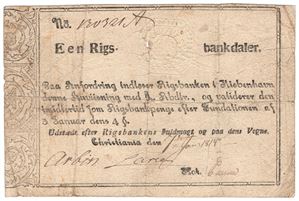 No.
Een Rigs- bankdaler.
Paa Anfordring indløser Rigsbanken i Kiøbenhavn
denne Anviisning med 1 Rbdlr., og validerer den
imidlertid som Rigsbankpenge efter Fundationen af
5 Januar dens 4 §.
Udstædt efter Rigsbankens Fuldmagt og paa dens Vegne.
Christiania den 1818